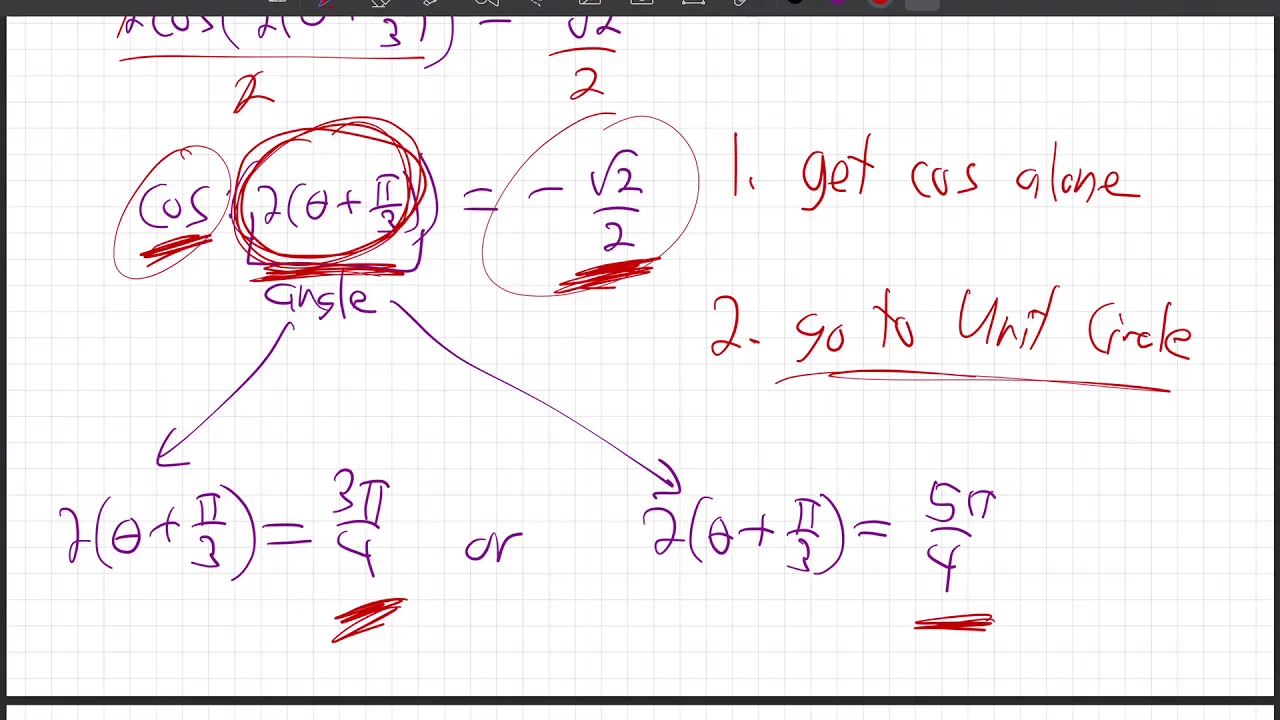 2cos(2(θ+π/3)) = √2/2
2
cos(2(θ+π/3)) = -√2/2
1. get cos alone
angle
2. go to Unit Circle
2(θ+π/3) = 3π/4 or 2(θ+π/3) = 5π/4